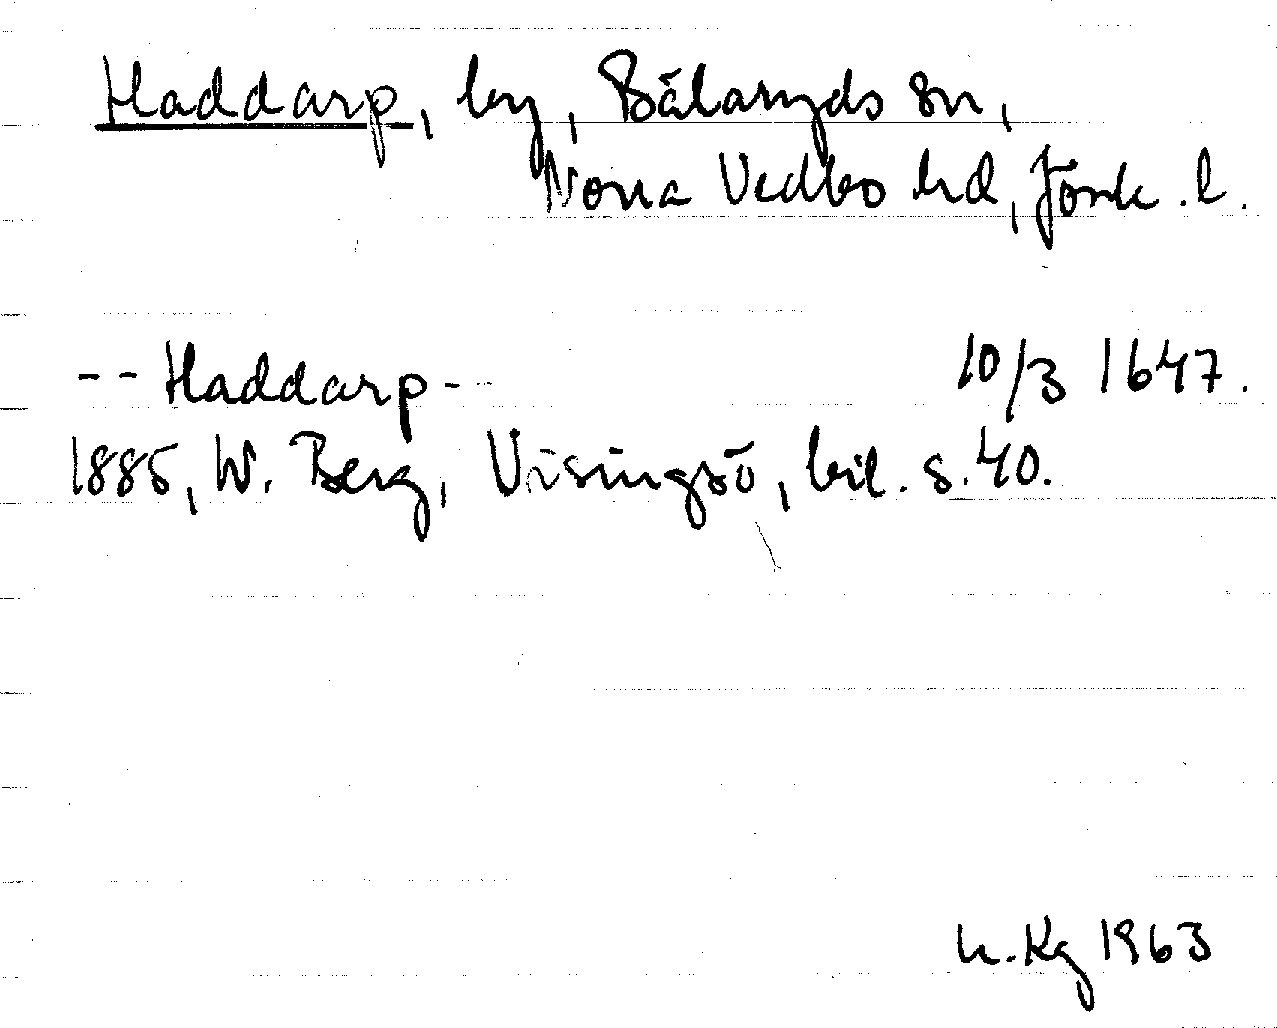 Haddarp, by, Bälaryds sn,
Norra Vedbo hd, Jönk. l.
-- Haddarp -- 10/3 1647.
1885, W. Berg, Visingsö, bil. s. 40.
h. Kg 1963